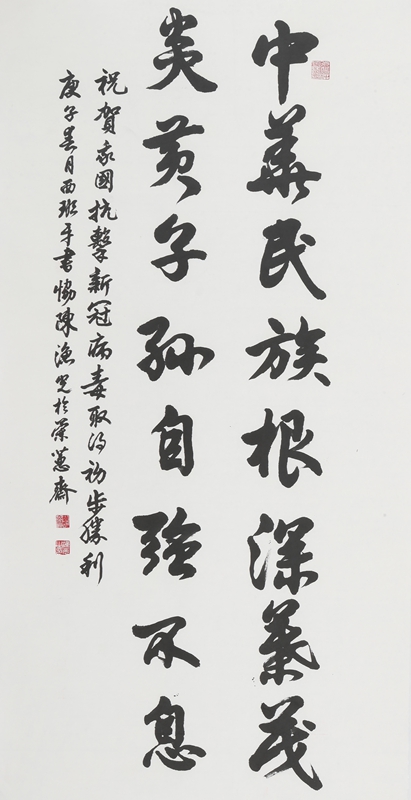 中華民族根深葉茂
炎黃子孫自強不息
祝賀我國抗擊新冠病毒取得初步勝利
庚子月西班牙書協陳漁光於榮蕙齋